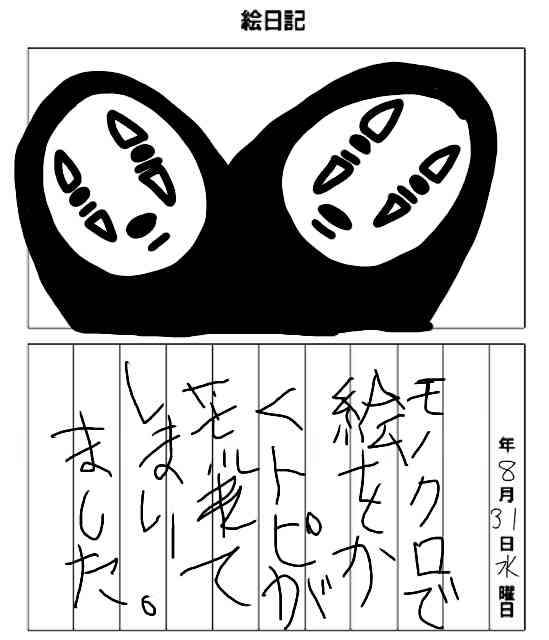 絵日記
年8月31日水曜日
モノクロで
絵をか
くトピが
荒れて
しまい。
ました